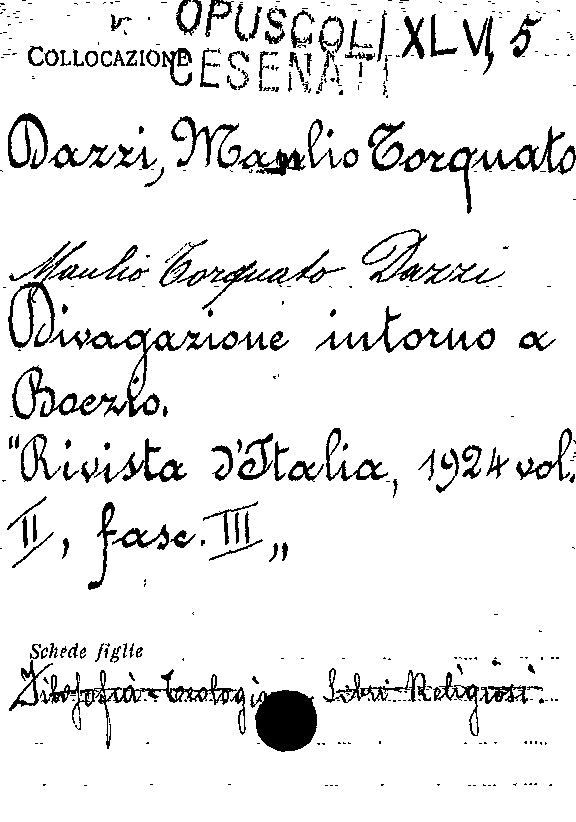 v. OPUSCOLI XLVI, 5
COLLOCAZIONE CESENATI
Dazzi, Manlio Torquato
Manlio Torquato Dazzi
Divagazione intorno a
Boezio.
"Rivista d'Italia, 1924 vol.
II, fasc. III„
Schede figlie
Filosofia - Teologia - Libri Religiosi.